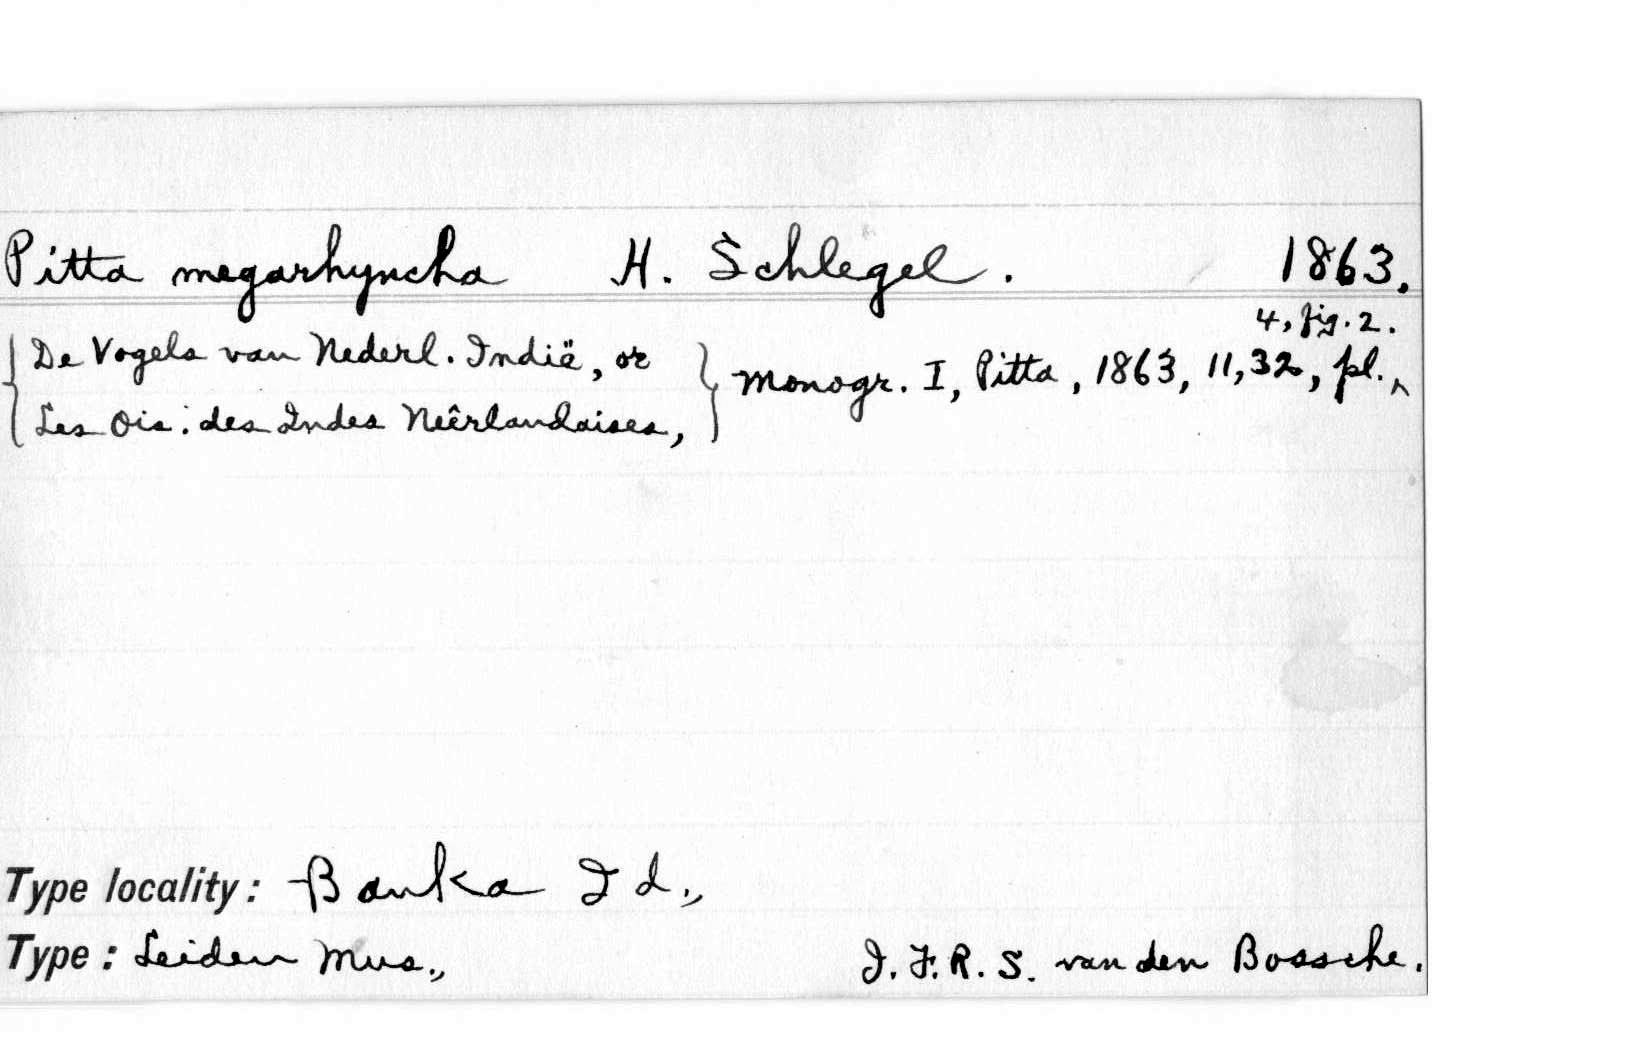 Pitta megarhyncha H. Schlegel. 1863.
{ De Vogels van Nederl. Indië, or
Les Ois. des Indes Neêrlandaises, } Monogr. I, Pitta, 1863, 11, 32, pl. ^ 4, fig. 2.
Type locality: Banka Id.,
Type: Leiden Mus., J. F. R. S. van den Bossche.